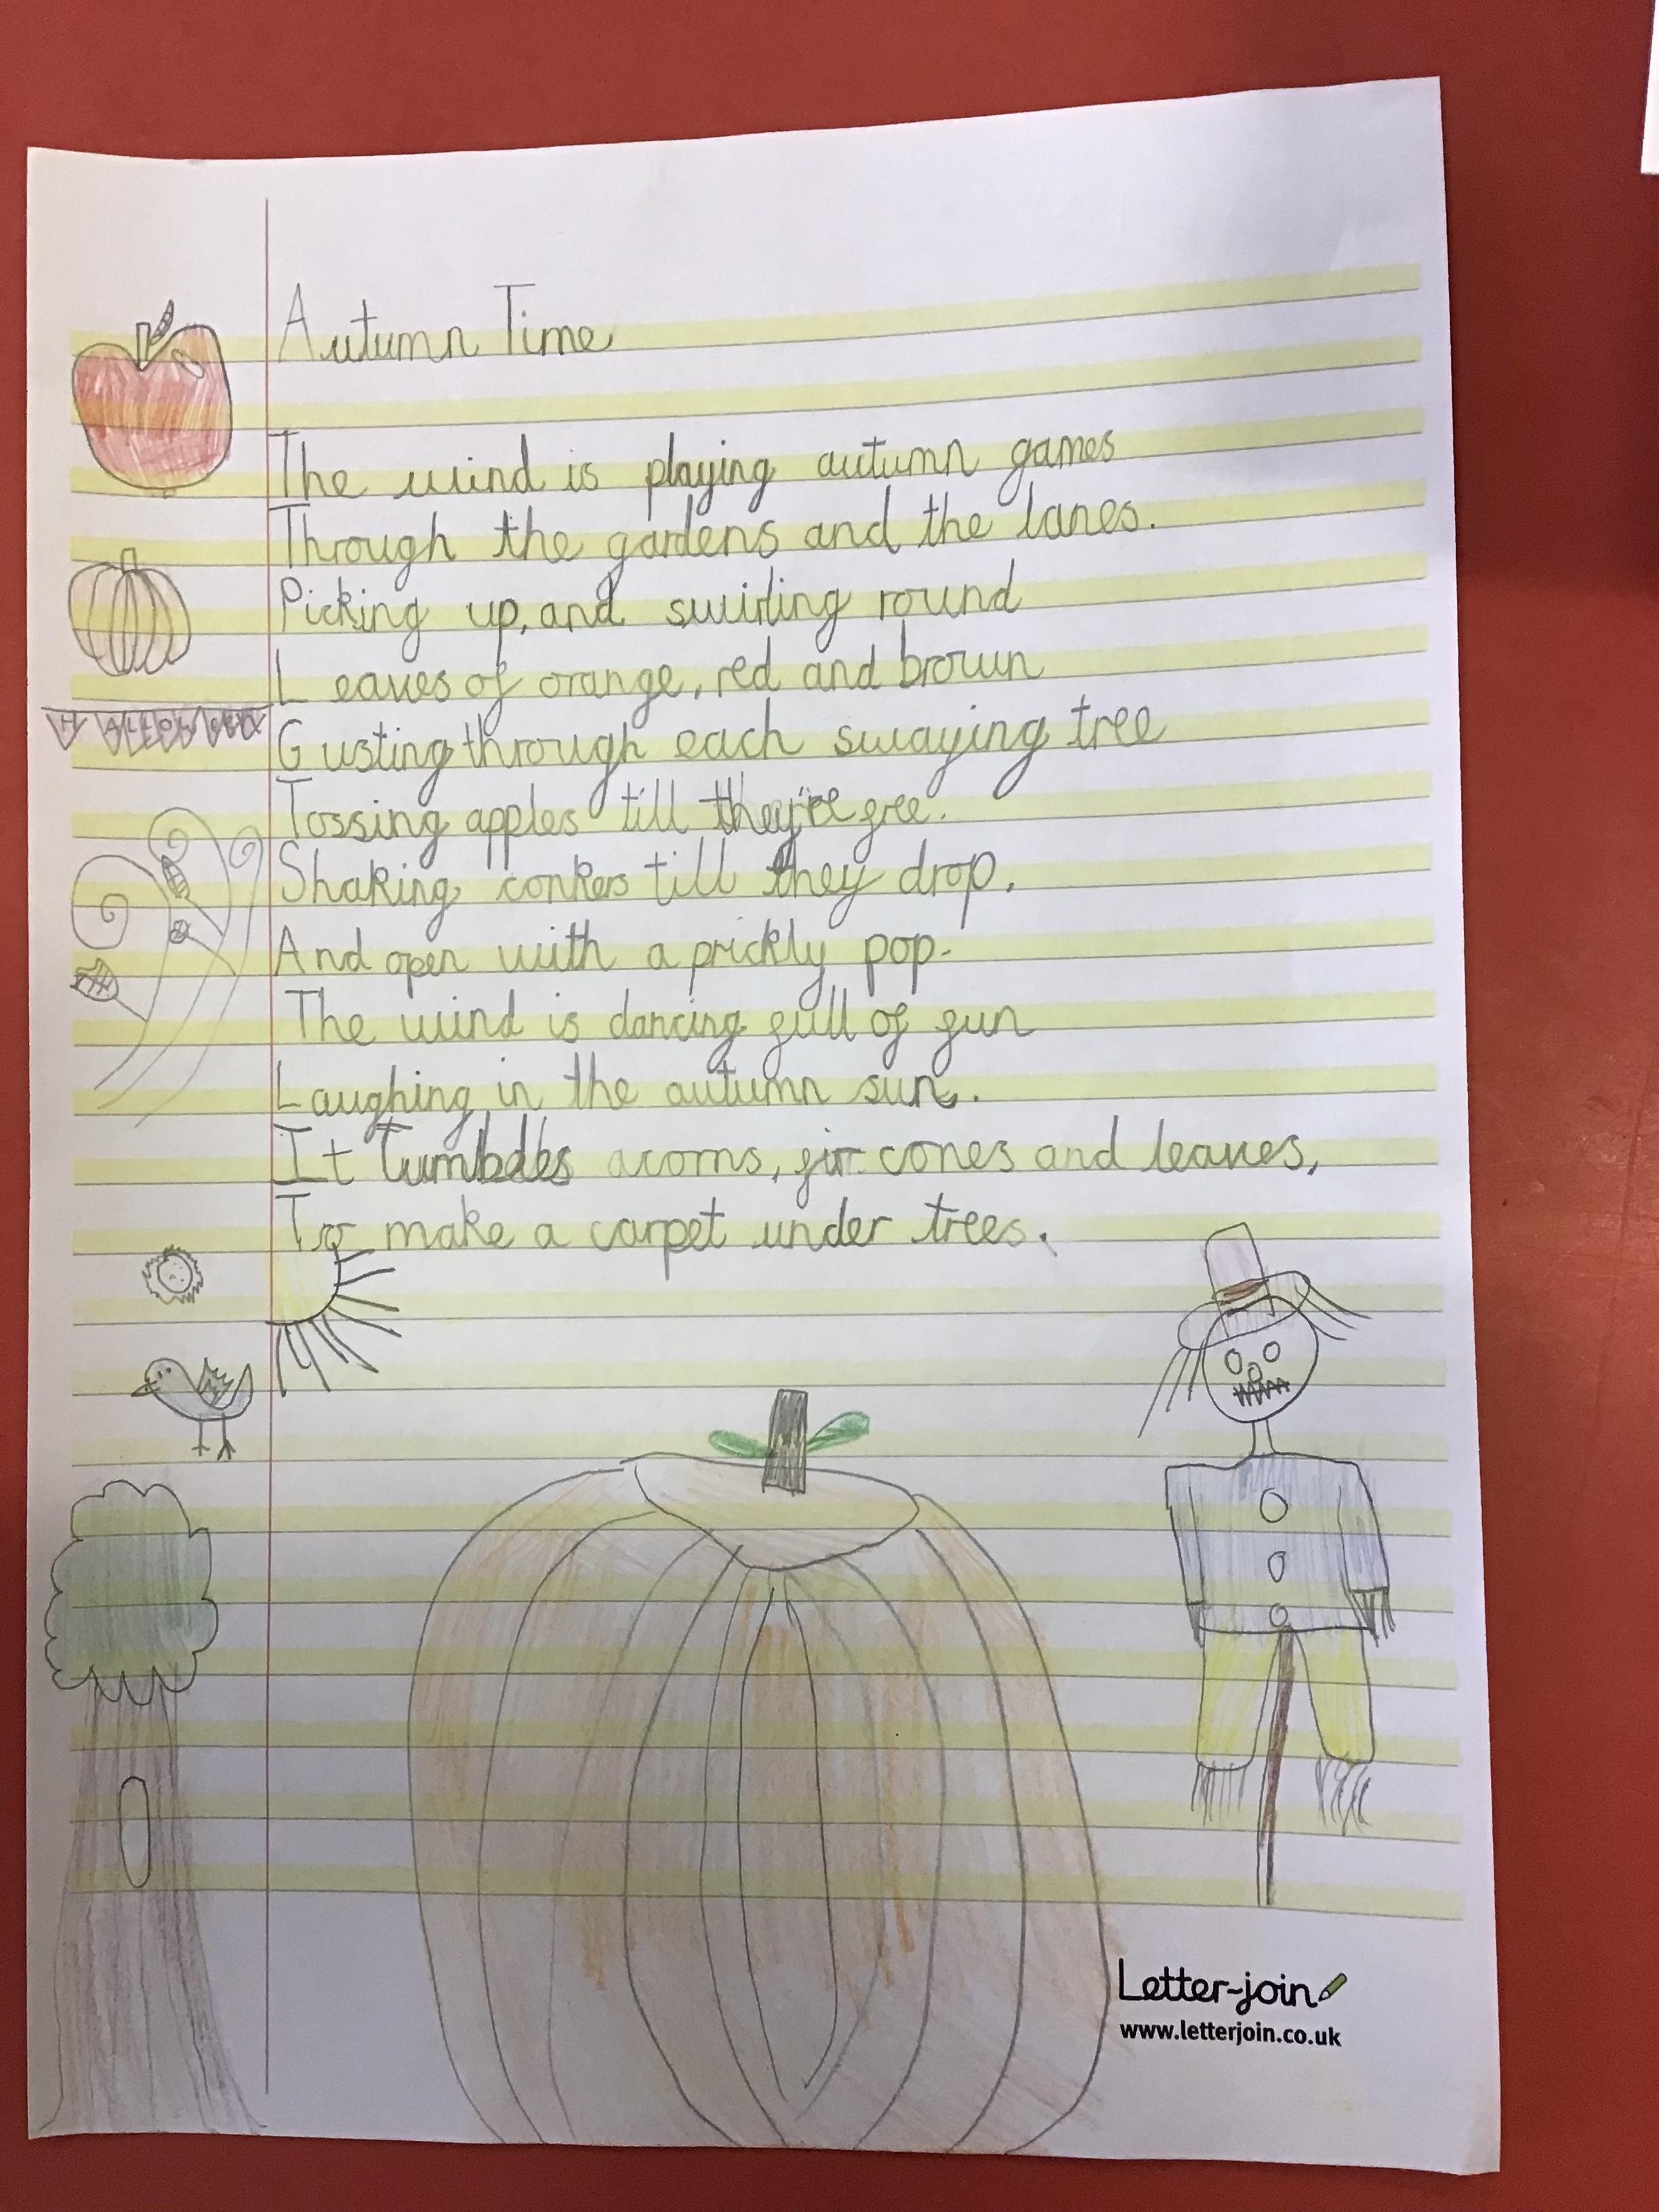 Autumn Time
The wind is playing autumn games
Through the gardens and the lanes.
Picking up, and swirling round
Leaves of orange, red and brown
HALLOWEEN
Gusting through each swaying tree
Tossing apples till they're free.
Shaking conkers till they drop.
And open with a prickly pop.
The wind is dancing full of fun
Laughing in the autumn sun.
It tumbles acorns, fir cones and leaves,
To make a carpet under trees.
Letter-join
www.letterjoin.co.uk